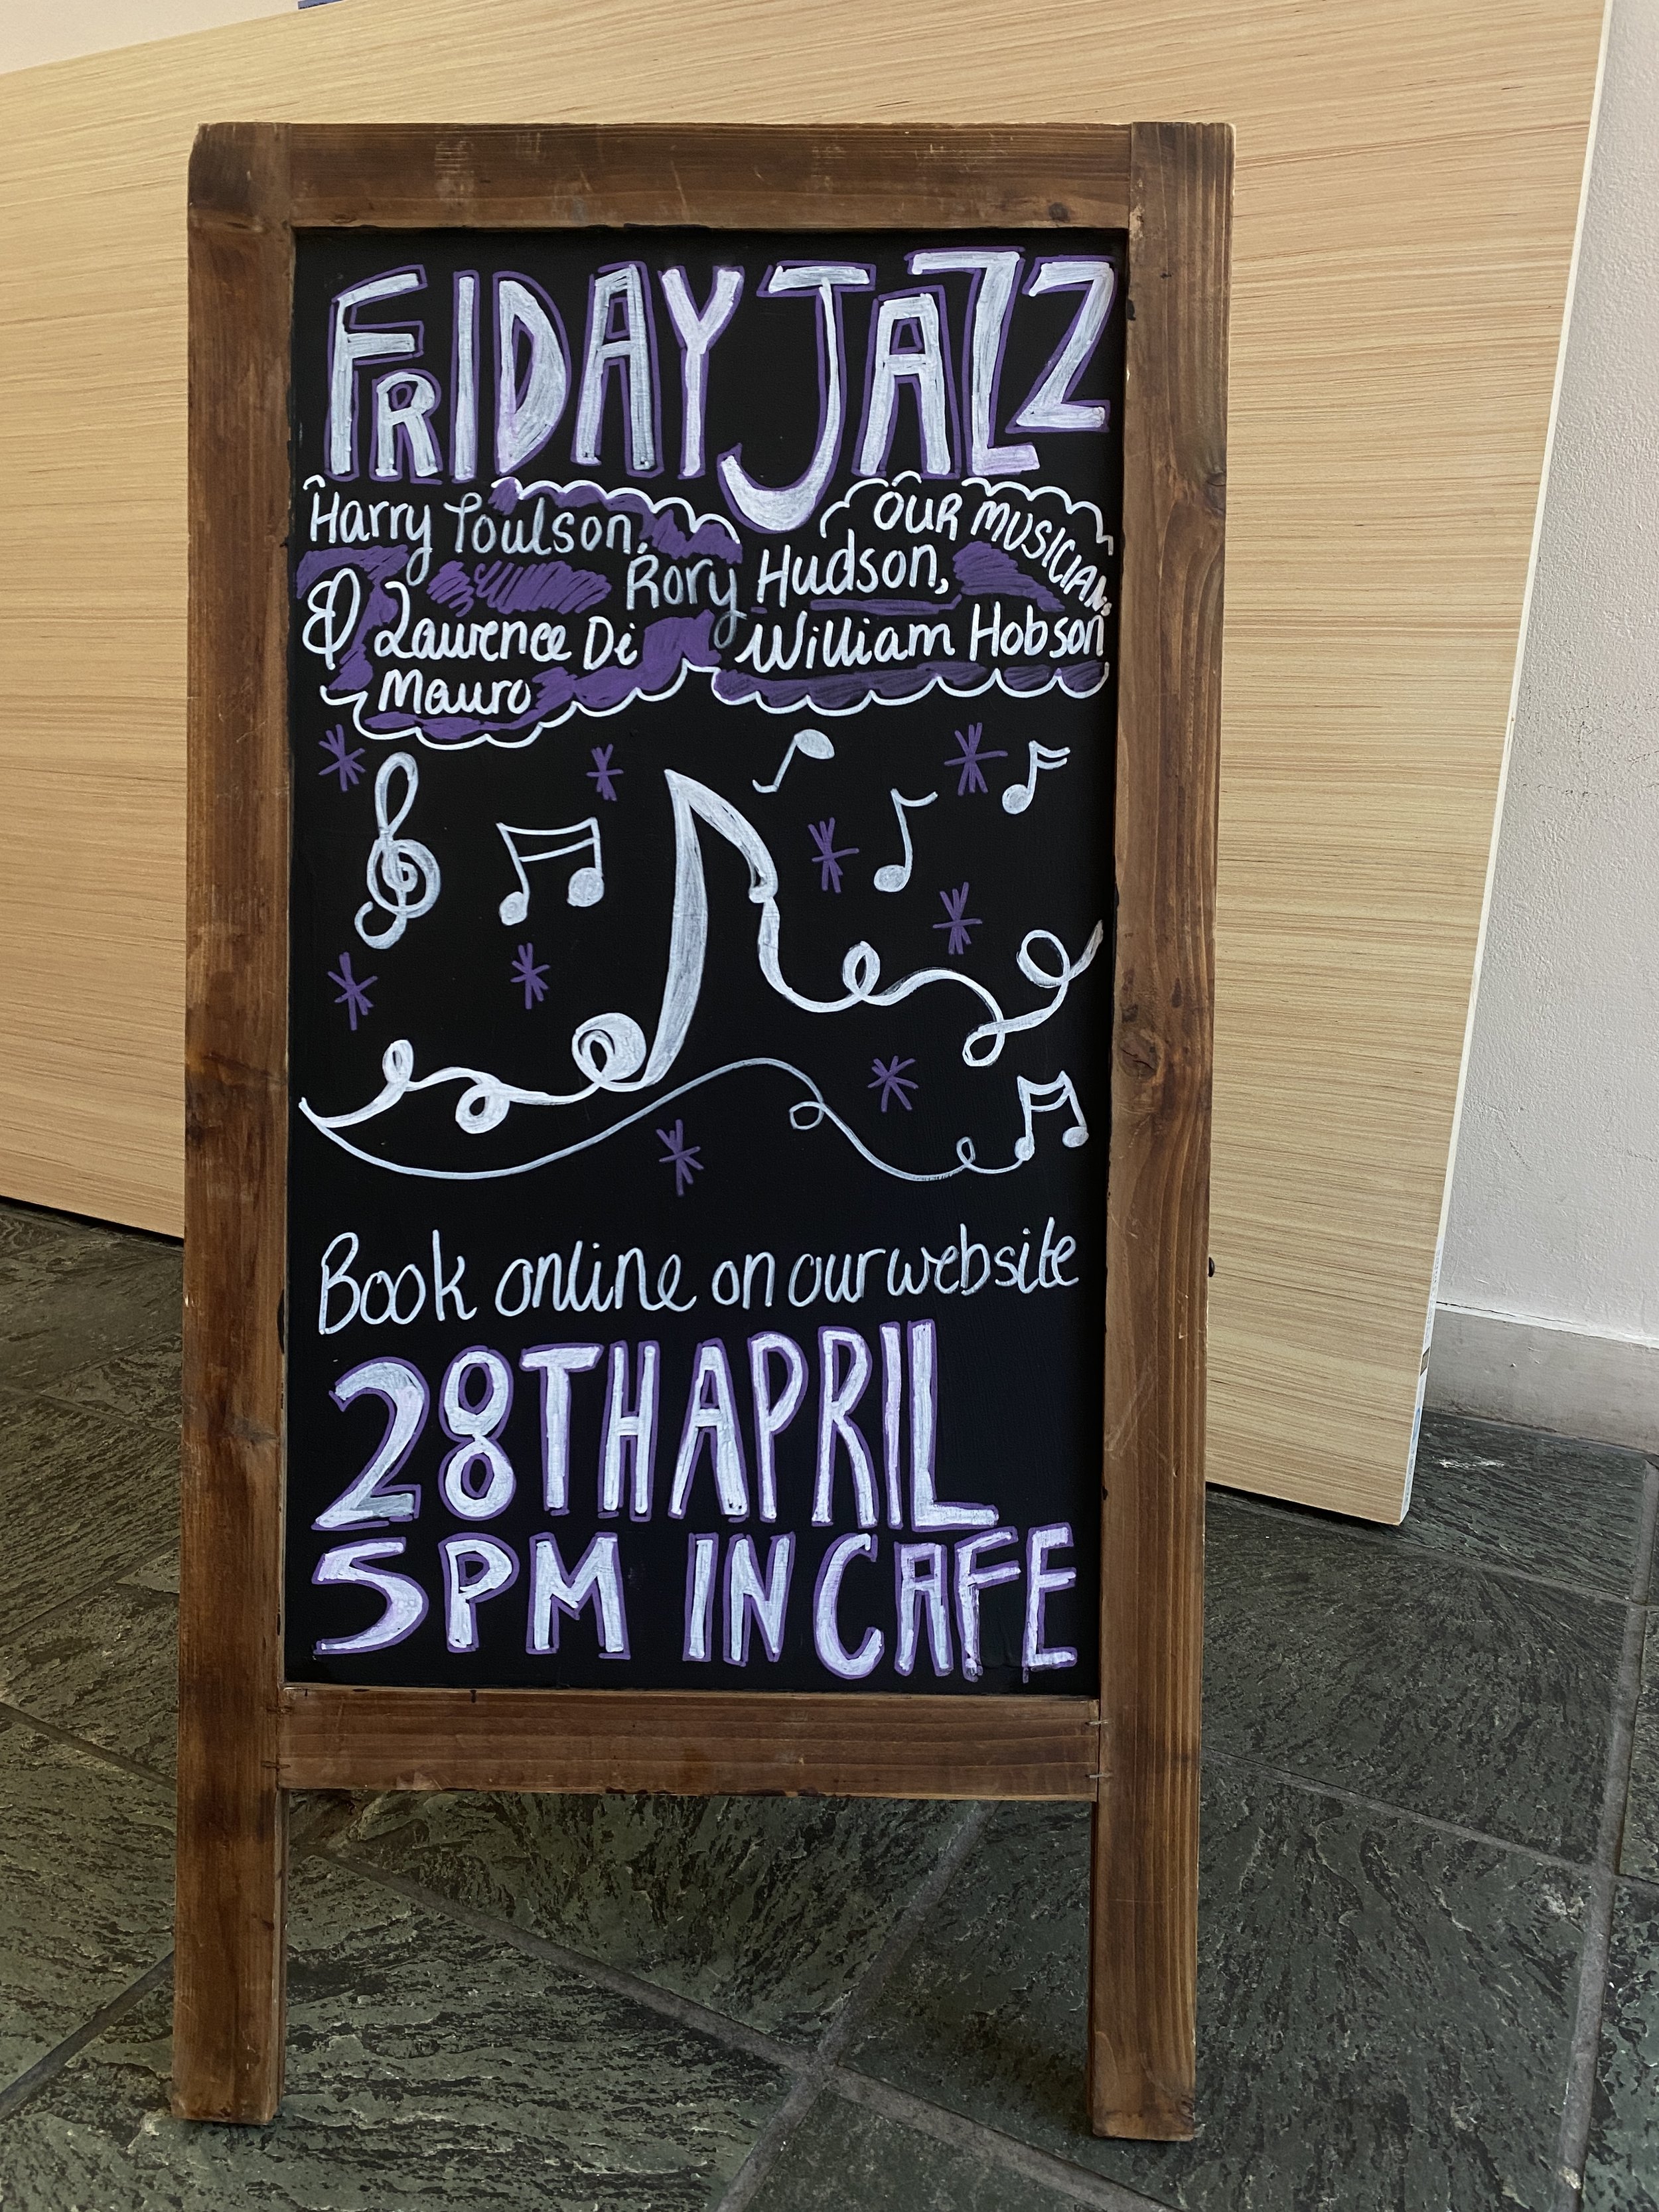 FRIDAY JAZZ
OUR MUSICIANS
Harry Poulson,
Rory Hudson,
& Lawrence Di Mauro
William Hobson
Book online on our website
28TH APRIL
5PM IN CAFE